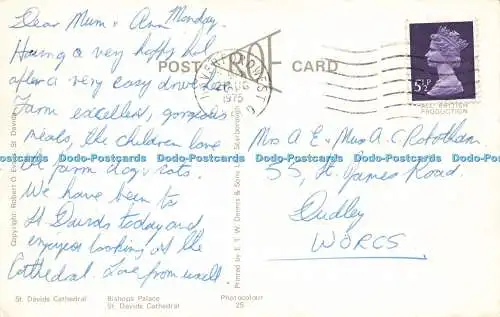 Dear Mum & Ann Monday.
Having a very happy hol
after a very easy drive down
Farm excellent, gorgeous
meals, the children love
the farm dogs & cats.
We have been to
St Davids today and
enjoyed looking at the
Cathedral. Love from us all.
POST CARD
AUG
1975
5½P
PRODUCTION
Mrs A E & Miss A C Rabothan
55, St. James Road.
Dudley
WORCS.
Dodo-Postcards Dodo-Postcards Dodo-Postcards Dodo-Postcards Dodo-Postcards
Copyright: Robert O. St. Davids
Printed by E. T. W. Dennis & Sons Scarborough
St. Davids Cathedral
Bishops Palace
St. Davids Cathedral
Photocolour
25